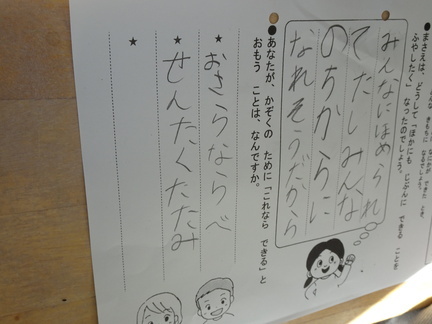 ●まさえは、どうして「ほかにも じぶんに できる ことを
ふやしたく」なったのでしょう。
みんなにほめられ
てたしみんな
のちからに
なれそうだから
●あなたが、かぞくの ために「これなら できる」と
おもう ことは、なんですか。
★おさらならべ
★せんたくたたみ
★